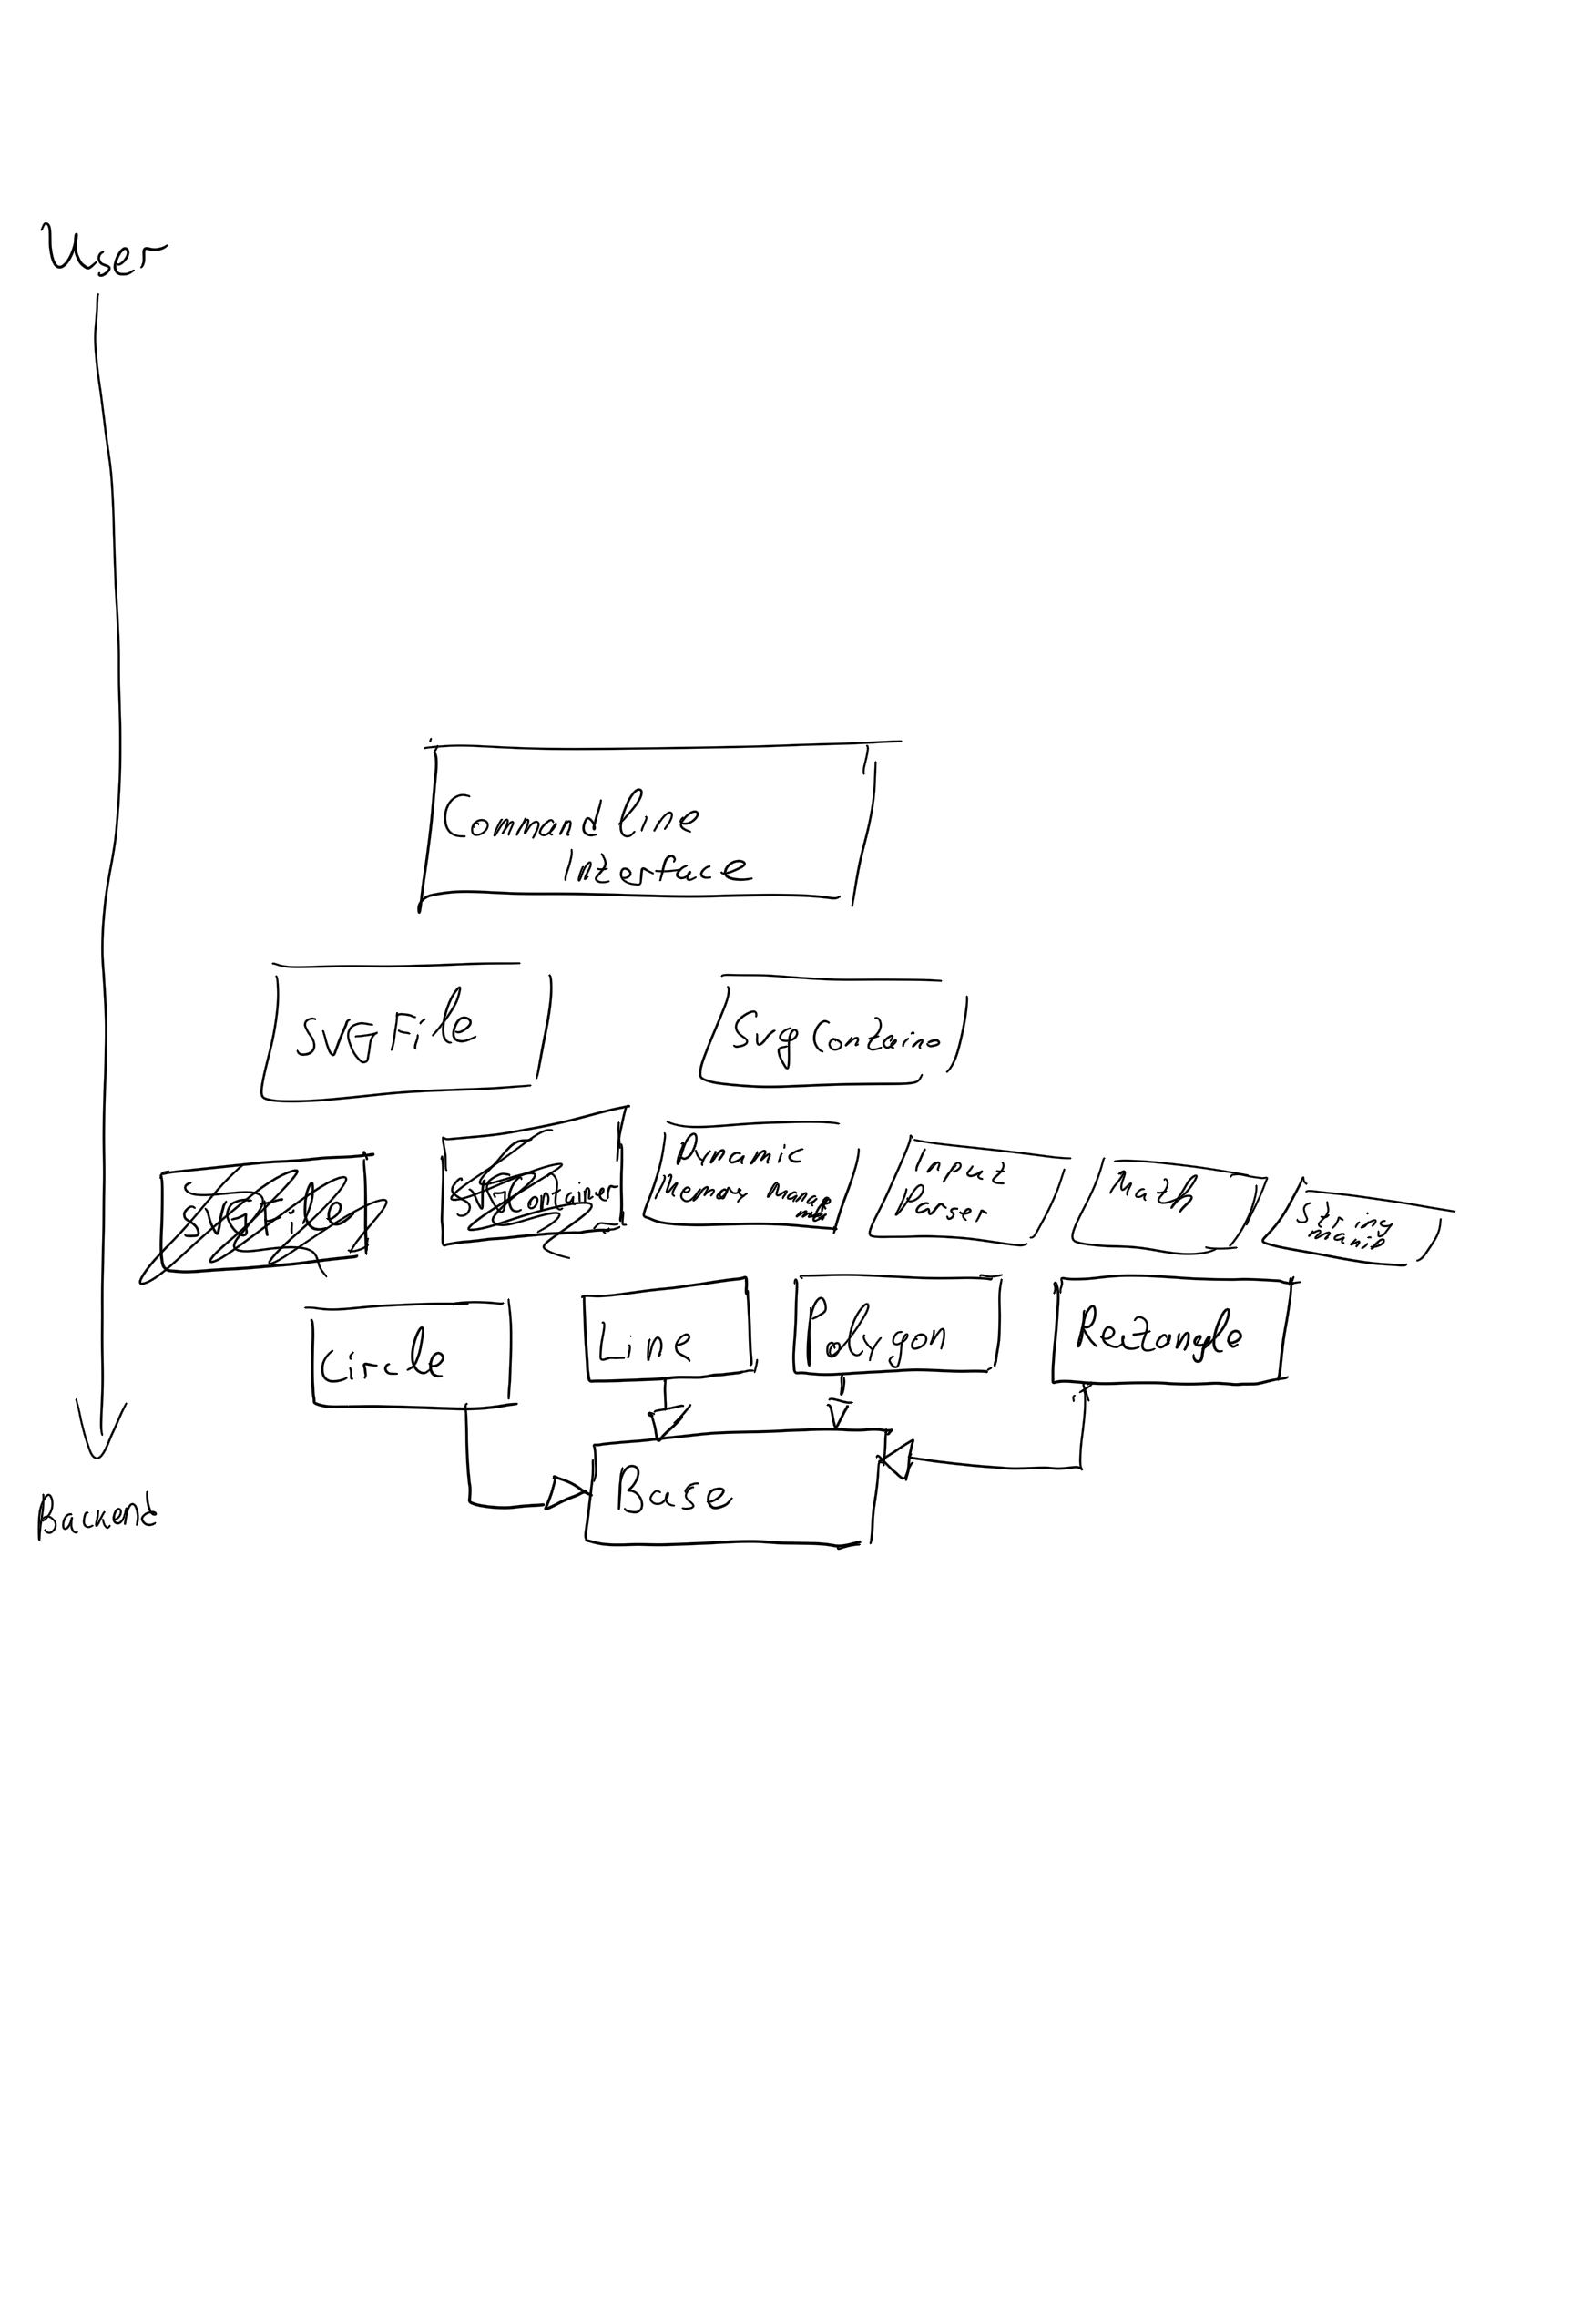 User
Command line
Interface
SVGFile
Svg Containo
SVGFile
SVGContainer
Dynamic
Memory Manage
Input
Parser
Math
String
manip
Circle
Line
Polygon
Rectangle
Base
Backend